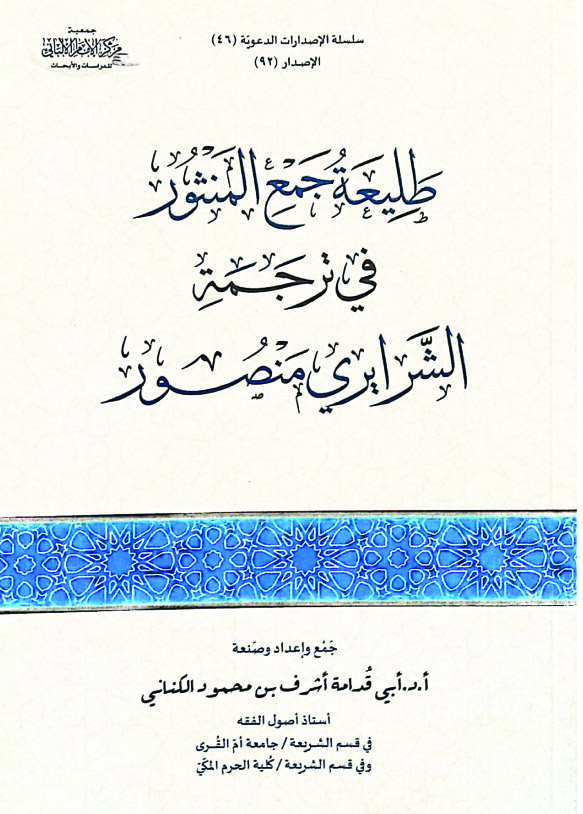 جمعية
مركز الإمام الألباني
للدراسات والأبحاث
سلسلة الإصدارات الدعويّة (٤٦)
الإصدار (٩٢)
طَلِيعَةُ جَمْعِ المَنْثُورِ
في تَرجَمَةِ
الشَّرايري مَنْصُور
جَمْع وإعداد وصَنعة
أ.د. أبي قُدامة أشرف بن محمود الكناني
أستاذ أصول الفقه
في قسم الشريعة / جامعة أمّ القُرى
وفي قسم الشريعة / كُلية الحرم المكّيّ